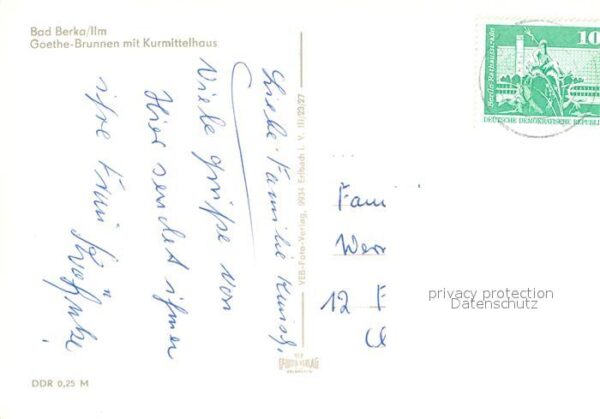 Bad Berka/Ilm
Goethe-Brunnen mit Kurmittelhaus
Liebe Familie
Viele grüße von
Hier sendet ihnen
ihre Frau
VEB-Foto-Verlag, 9934 Erlbach i. V. III/23/27
VEB
FOTO-VERLAG
ERLBACH
DDR 0,25 M
10
Berlin-Rathausstraße
DEUTSCHE DEMOKRATISCHE REPUBL
Fam
Wer
12 F
privacy protection
Datenschutz